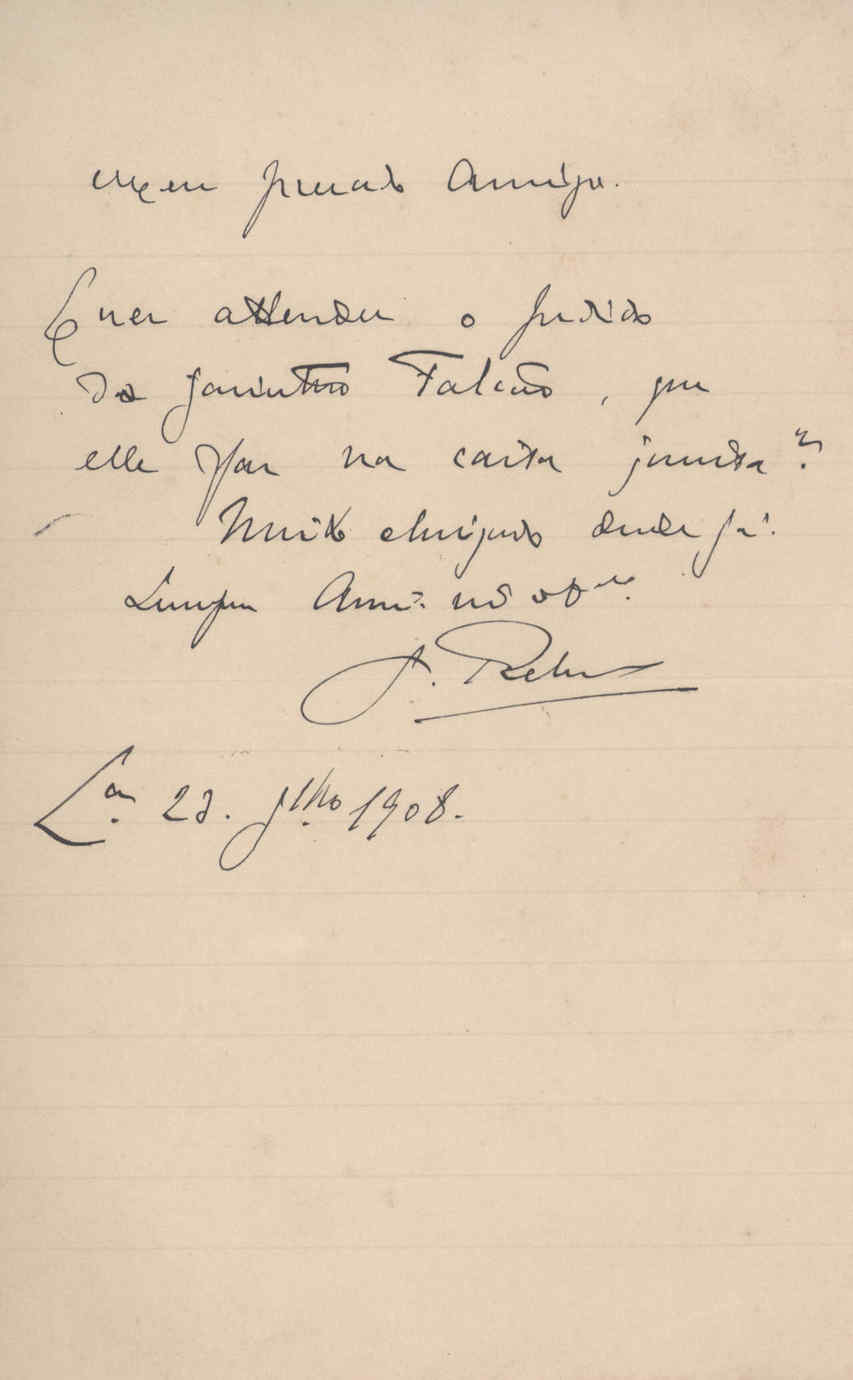 Meu prezado Amigo.
Quer attender o pedido
do Jacintho Falcão, que
elle faz na carta junta?
Muito obrigado desde já.
Sempre Amº.
J.
Lxa. 23. Jlho 1908.